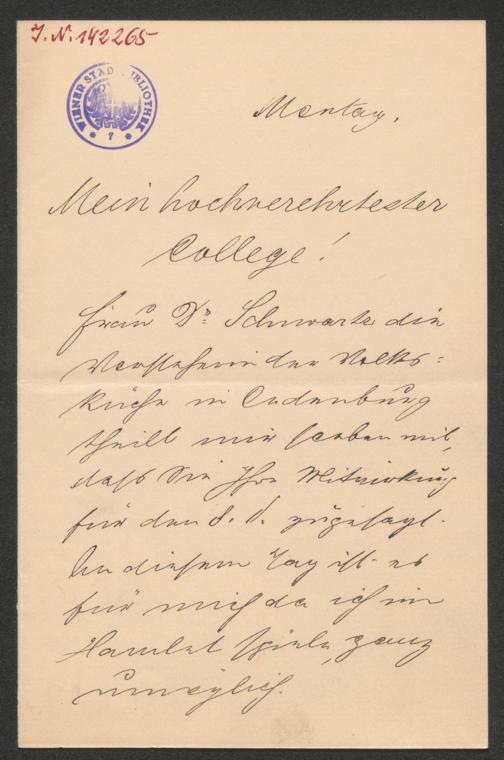 J. N. 142265
WIENER STADTBIBLIOTHEK
* 7 *
Montag.
Mein hochverehrtester
College!
Frau Dr. Schwartz die
Vorsteherin der Volks=
küche in Oedenburg
theilt mir soeben mit,
daß Sie Ihre Mitwirkung
für den 8. d. zugesagt.
An diesem Tag ist es
für mich da ich im
Hamlet spiele, ganz
unmöglich.